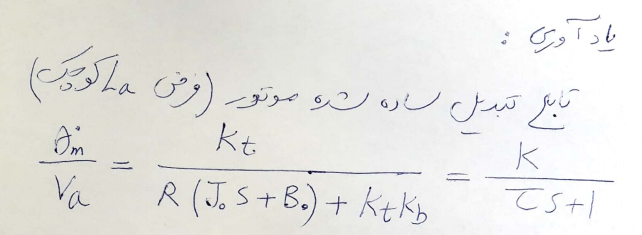 یادآوری :
تابع تبدیل ساده شده موتور (فرض La کوچک)
θ̇m / Va = Kt / (R (J₀ S + B₀) + Kt Kb) = K / (τS + 1)